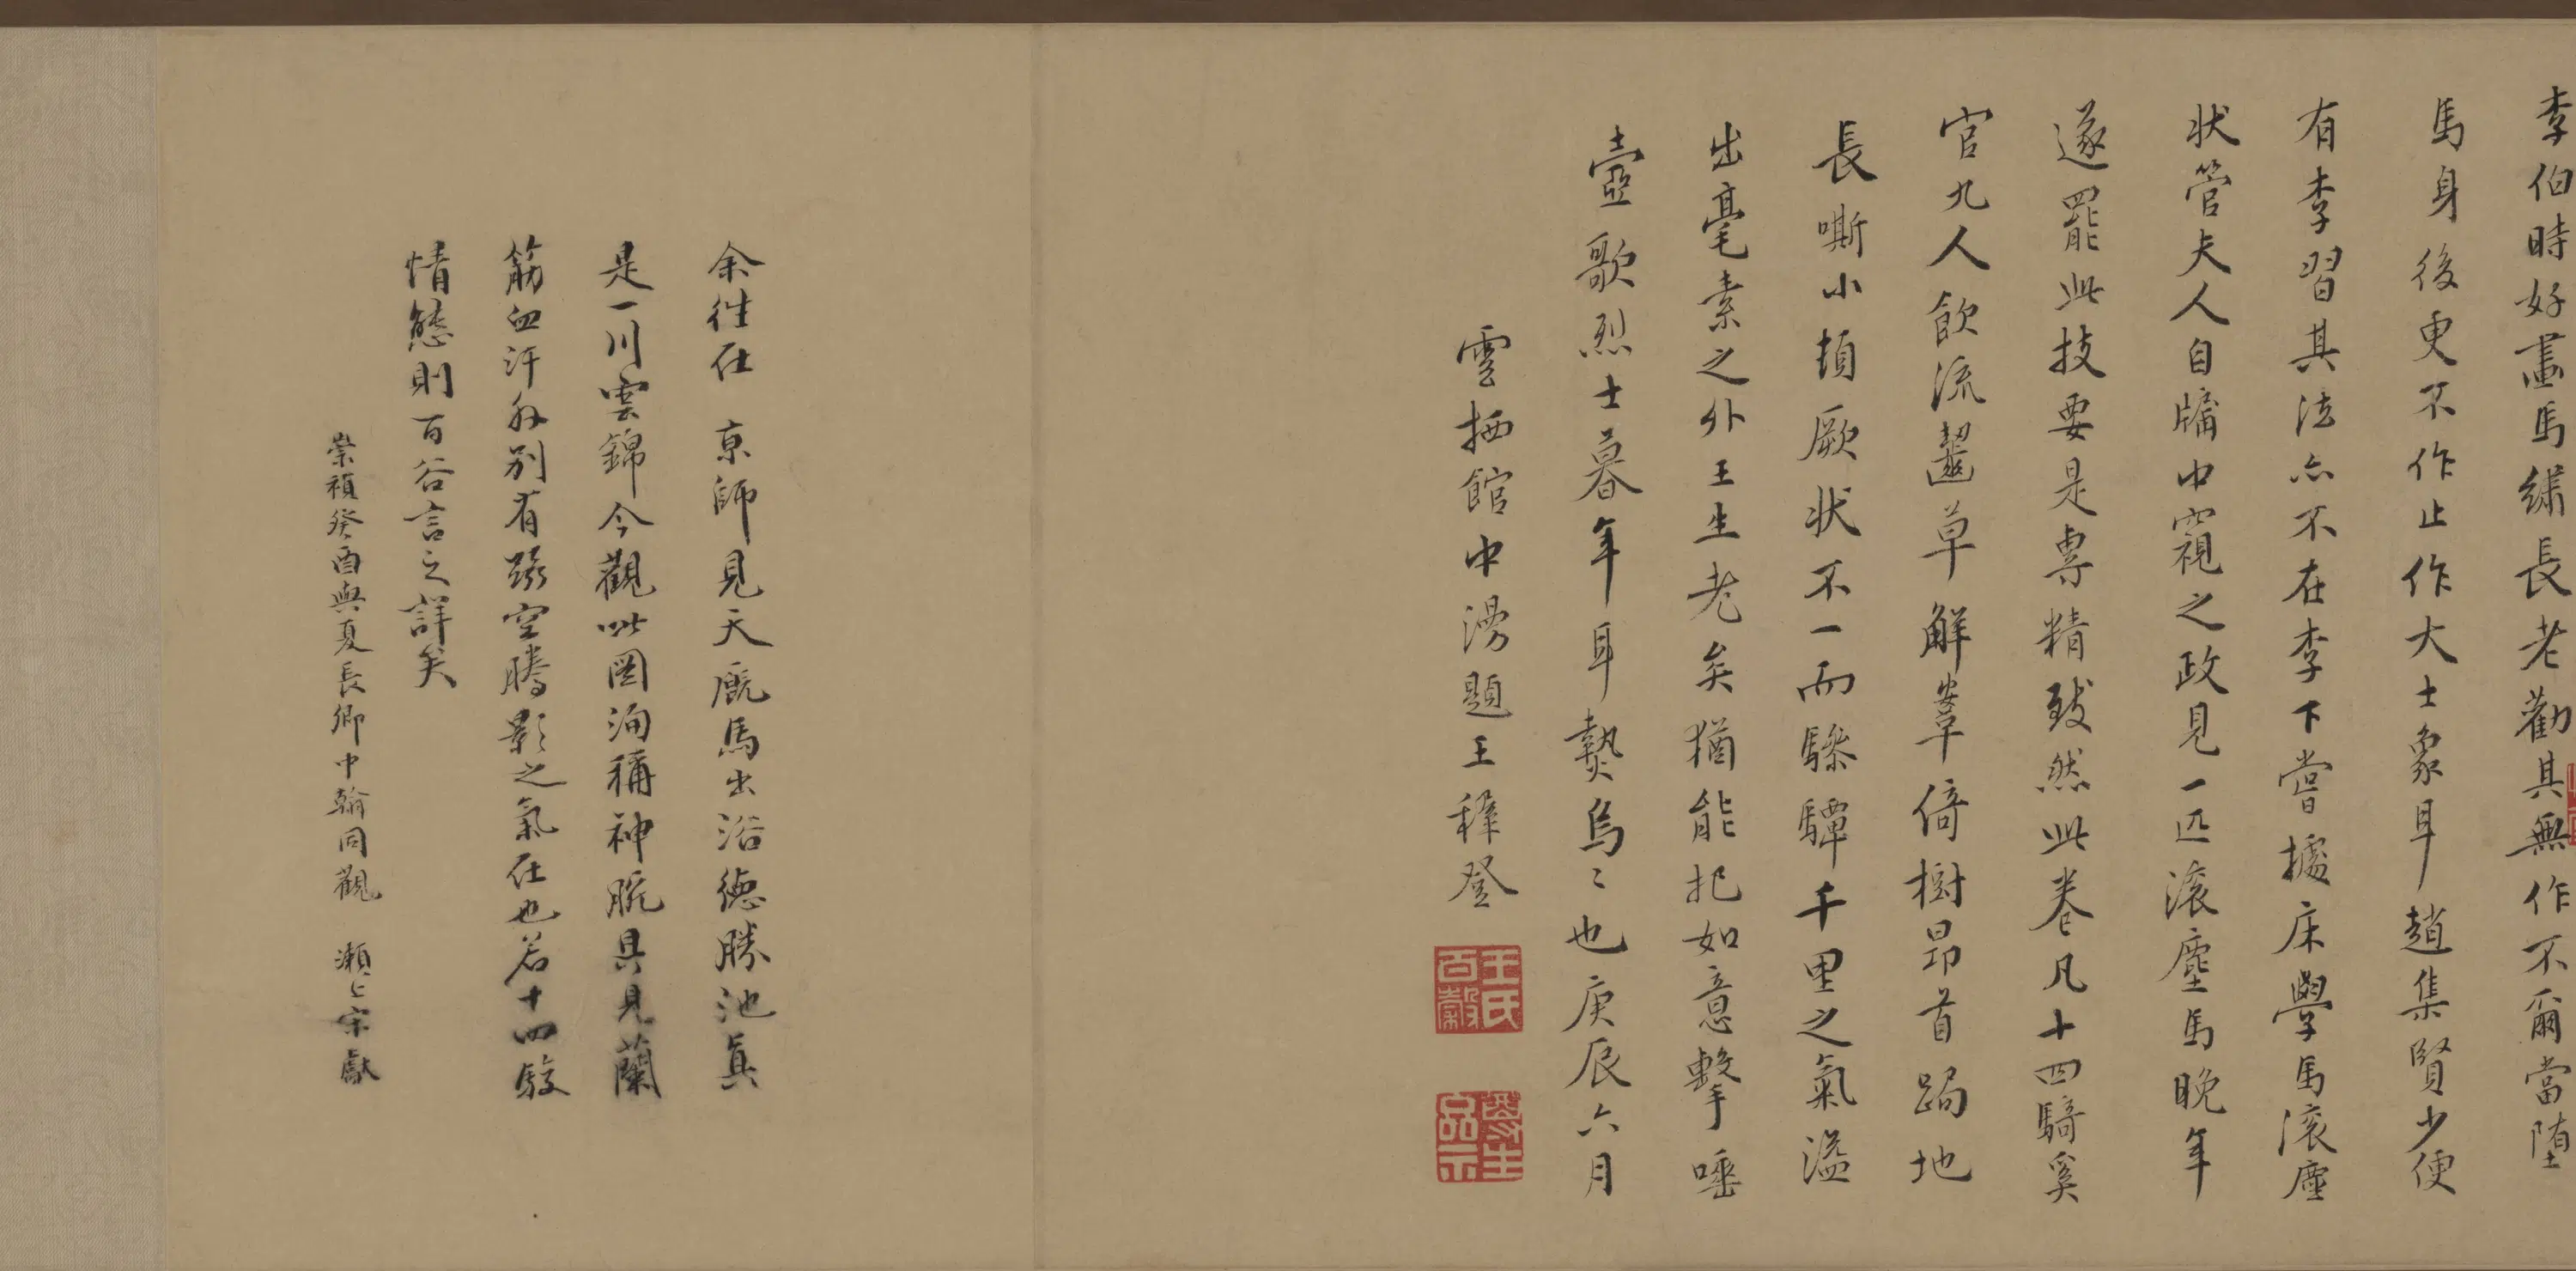 李伯時好畫馬繡長老勸其無作不爾當墮
馬身後更不作止作大士象耳趙集賢少便
有李習其法亦不在李下嘗據床學馬滚塵
狀管夫人自牖中窺之政見一匹滚塵馬晚年
遂罷此技要是專精致然此卷凡十四騎奚
官九人飲流齧草解鞌倚樹昂首跼地
長嘶小頓厥狀不一而騄驔千里之氣溢
出毫素之外王生老矣猶能把如意擊唾
壺歌烈士暮年耳爇烏〻也庚辰六月
雲栖館中漫題王穉登
王氏百穀
余往在 京師見天厩馬出浴德勝池真
是一川雲錦今觀此圖洵稱神腕具見蘭
筋血汗外別有蹑空騰影之氣在也若十四駿
情態則百谷言之詳矣
崇禎癸酉與夏長卿中翰同觀 瀨上宋獻